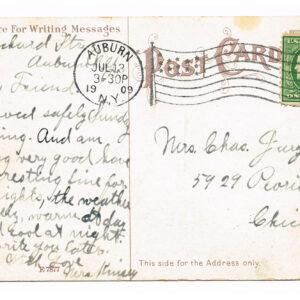 re For Writing Messages
Orchard Str
Auburn
y Friend,
ived safely Sunday
ing. And am
ng very good have
eresting time for
nights, the weather
warm at day
d cool at night.
rite you later.
Love
E 7877
AUBURN
JUL 13
3-30P
19 09
N.Y.
Post CARD
Mrs. Chas.
5929 Peoria
Chic
This side for the Address only.